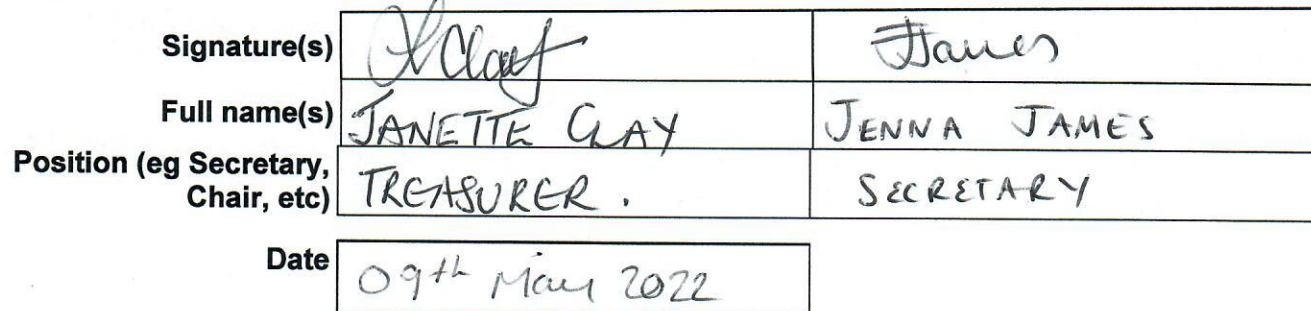 Signature(s) JClay JJames
Full name(s) JANETTE CLAY JENNA JAMES
Position (eg Secretary,
Chair, etc) TREASURER. SECRETARY
Date 09th May 2022